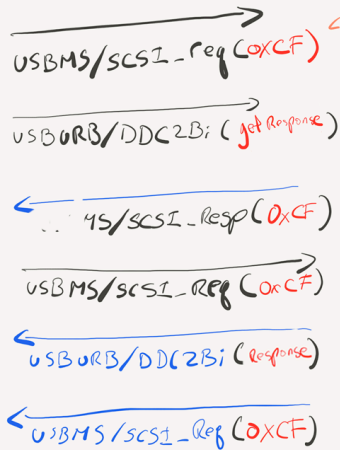 USBMS/SCSI_req(0xCF)
USBURB/DDC2Bi(getResponse)
MS/SCSI_Resp(0xCF)
USBMS/SCSI_Req(0xCF)
USBURB/DDC2Bi(Response)
USBMS/SCSI_Req(0xCF)